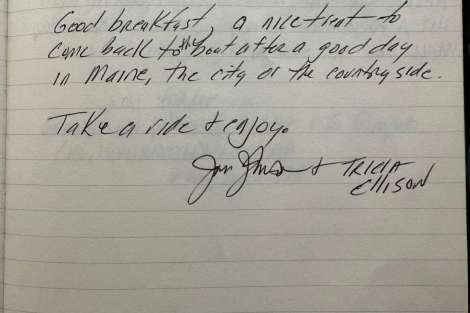 Good breakfast, a nice treat to
come back to the boat after a good day
in Maine, the city or the countryside.
Take a ride & enjoy.
& TRICIA
ELLISON